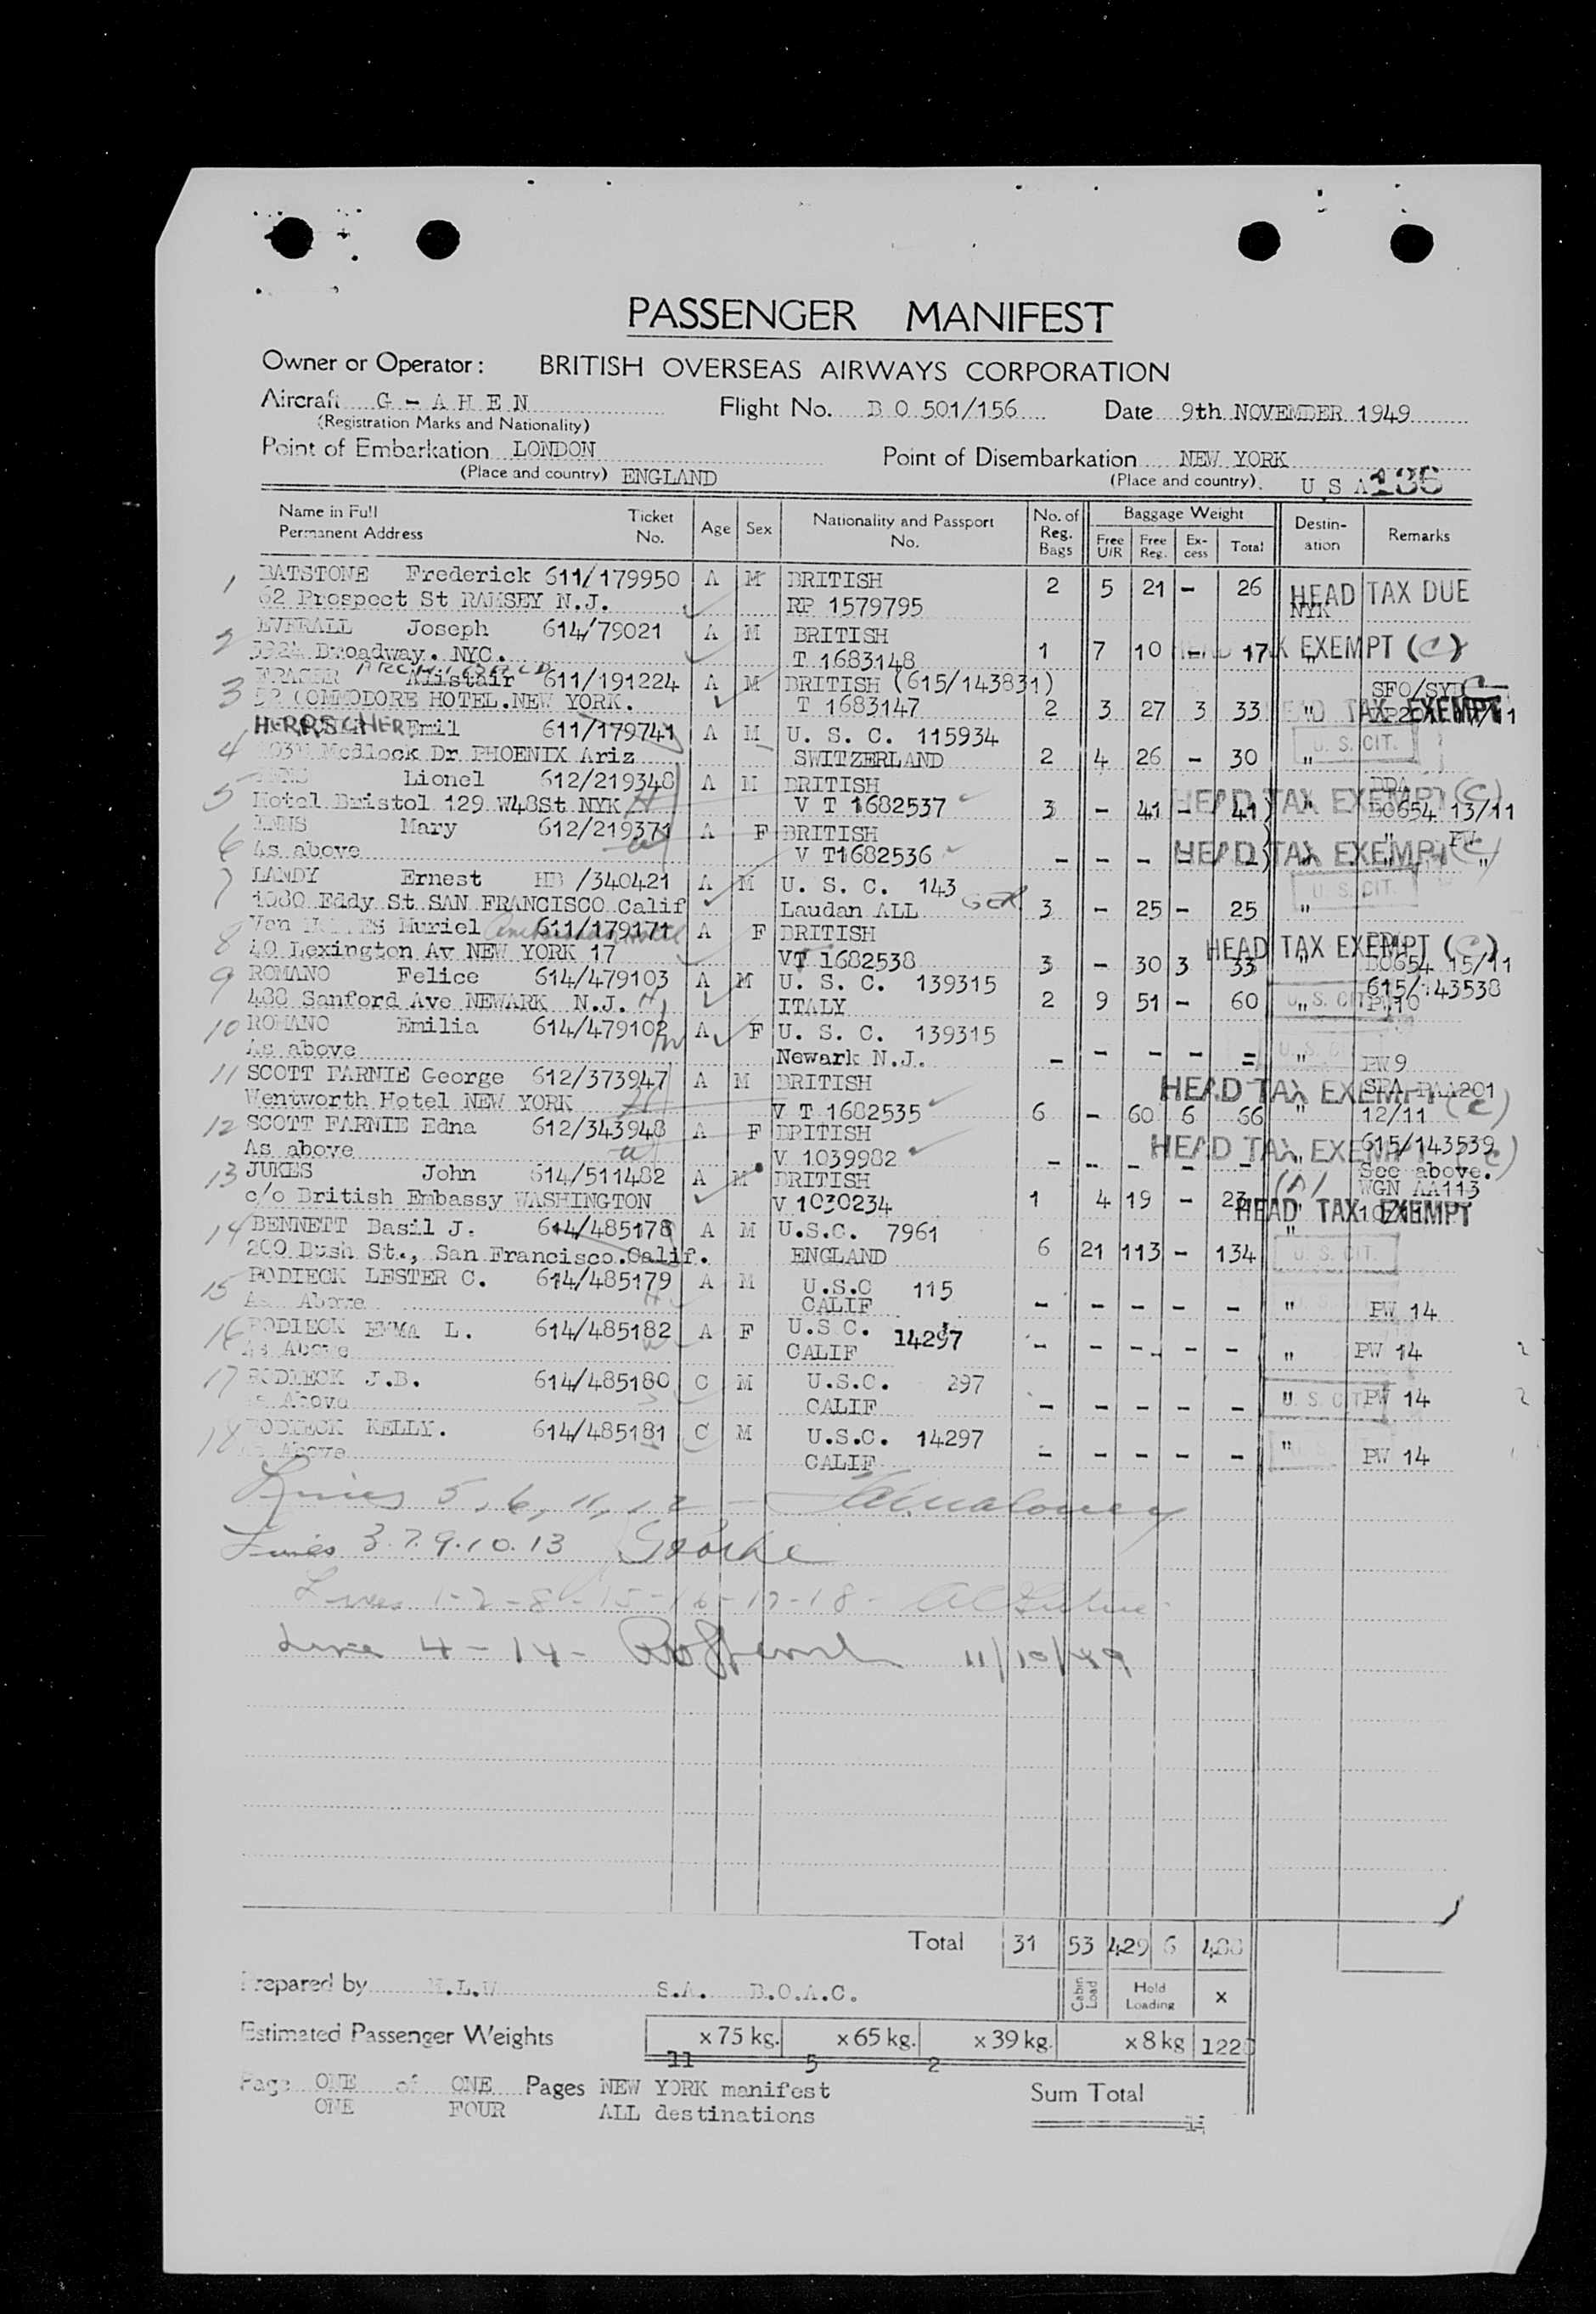 PASSENGER MANIFEST
Owner or Operator : BRITISH OVERSEAS AIRWAYS CORPORATION
Aircraft G - A H E N Flight No. B O 501/156 Date 9th NOVEMBER 1949
(Registration Marks and Nationality)
Point of Embarkation LONDON Point of Disembarkation NEW YORK
(Place and country) ENGLAND (Place and country). U S A
Name in Full Ticket Age Sex Nationality and Passport No. of Baggage Weight Destin- Remarks
Permanent Address No. No. Reg. Bags Free U/R Free Reg. Ex- cess Total ation
1 BATSTONE Frederick 611/179950 A M BRITISH 2 5 21 - 26 HEAD TAX DUE
62 Prospect St RAMSEY N.J. RP 1579795 NYK
2 EVERALL Joseph 614/79021 A M BRITISH
Broadway. NYC. T 1683148 1 7 10 17 " EXEMPT (C)
3 FRASER Alistair 611/191224 A M BRITISH (615/143831) SFO/SYD
COMMODORE HOTEL.NEW YORK. T 1683147 2 3 27 3 33 TAX EXEMPT
4 HERRSCHER Emil 611/179741 A M U. S. C. 115934 U. S. CIT.
Medlock Dr PHOENIX Ariz SWITZERLAND 2 4 26 - 30 "
5 Lionel 612/219348 A M BRITISH BDA
Hotel Bristol 129 W48St NYK V T 1682537 3 - 41 - 41 HEAD TAX EXEMPT (C) BO654 13/11
6 Mary 612/219371 A F BRITISH
As above V T1682536 - - - - - HEAD TAX EXEMPT (C)
7 LANDY Ernest HB /340421 A M U. S. C. 143 U. S. CIT.
1080 Eddy St SAN FRANCISCO Calif Laudan ALL 3 - 25 - 25 "
8 Muriel 611/179171 A F BRITISH HEAD TAX EXEMPT (C)
40 Lexington Av NEW YORK 17 VT 1682538 3 - 30 3 33 " BO654 15/11
9 ROMANO Felice 614/479103 A M U. S. C. 139315 615/143538
488 Sanford Ave NEWARK N.J. ITALY 2 9 51 - 60 " U. S. CIT PW10
10 ROMANO Emilia 614/479102 A F U. S. C. 139315
As above Newark N.J. - - - - - " PW 9
11 SCOTT FARNIE George 612/373947 A M BRITISH HEAD TAX EXEMPT (C)
Wentworth Hotel NEW YORK V T 1682535 6 - 60 6 66 " 12/11
12 SCOTT FARNIE Edna 612/343948 A F BRITISH 615/143539
As above V 1039982 - - - - - HEAD TAX EXEMPT (C) See above.
13 JUKES John 514/511482 A M BRITISH (A) WGN AA113
c/o British Embassy WASHINGTON V 1030234 1 4 19 - 23 HEAD TAX EXEMPT
14 BENNETT Basil J. 614/485178 A M U.S.C. 7961 "
200 Bush St., San Francisco.Calif. ENGLAND 6 21 113 - 134 U. S. CIT.
15 RODIECK LESTER C. 614/485179 A M U.S.C 115
As Above CALIF - - - - - " PW 14
16 RODIECK EMMA L. 614/485182 A F U.S C. 14297
As Above CALIF - - - - - " PW 14
17 RODIECK J.B. 614/485180 C M U.S.C. 297
As Above CALIF - - - - - " U. S. CIT PW 14
18 RODIECK KELLY. 614/485181 C M U.S.C. 14297
As Above CALIF - - - - - " PW 14
Lines 5, 6, 11, 12 -
Lines 3.7.9.10.13
Lines 1-2-8-15-16-17-18-
Line 4-14- 11/10/49
Total 31 53 429 6 488
Prepared by S.A. B.O.A.C. Cabin Load Hold Loading x
Estimated Passenger Weights x 75 kg. x 65 kg. x 39 kg. x 8 kg 1220
11 5 2
Page ONE of ONE Pages NEW YORK manifest Sum Total
ONE FOUR ALL destinations